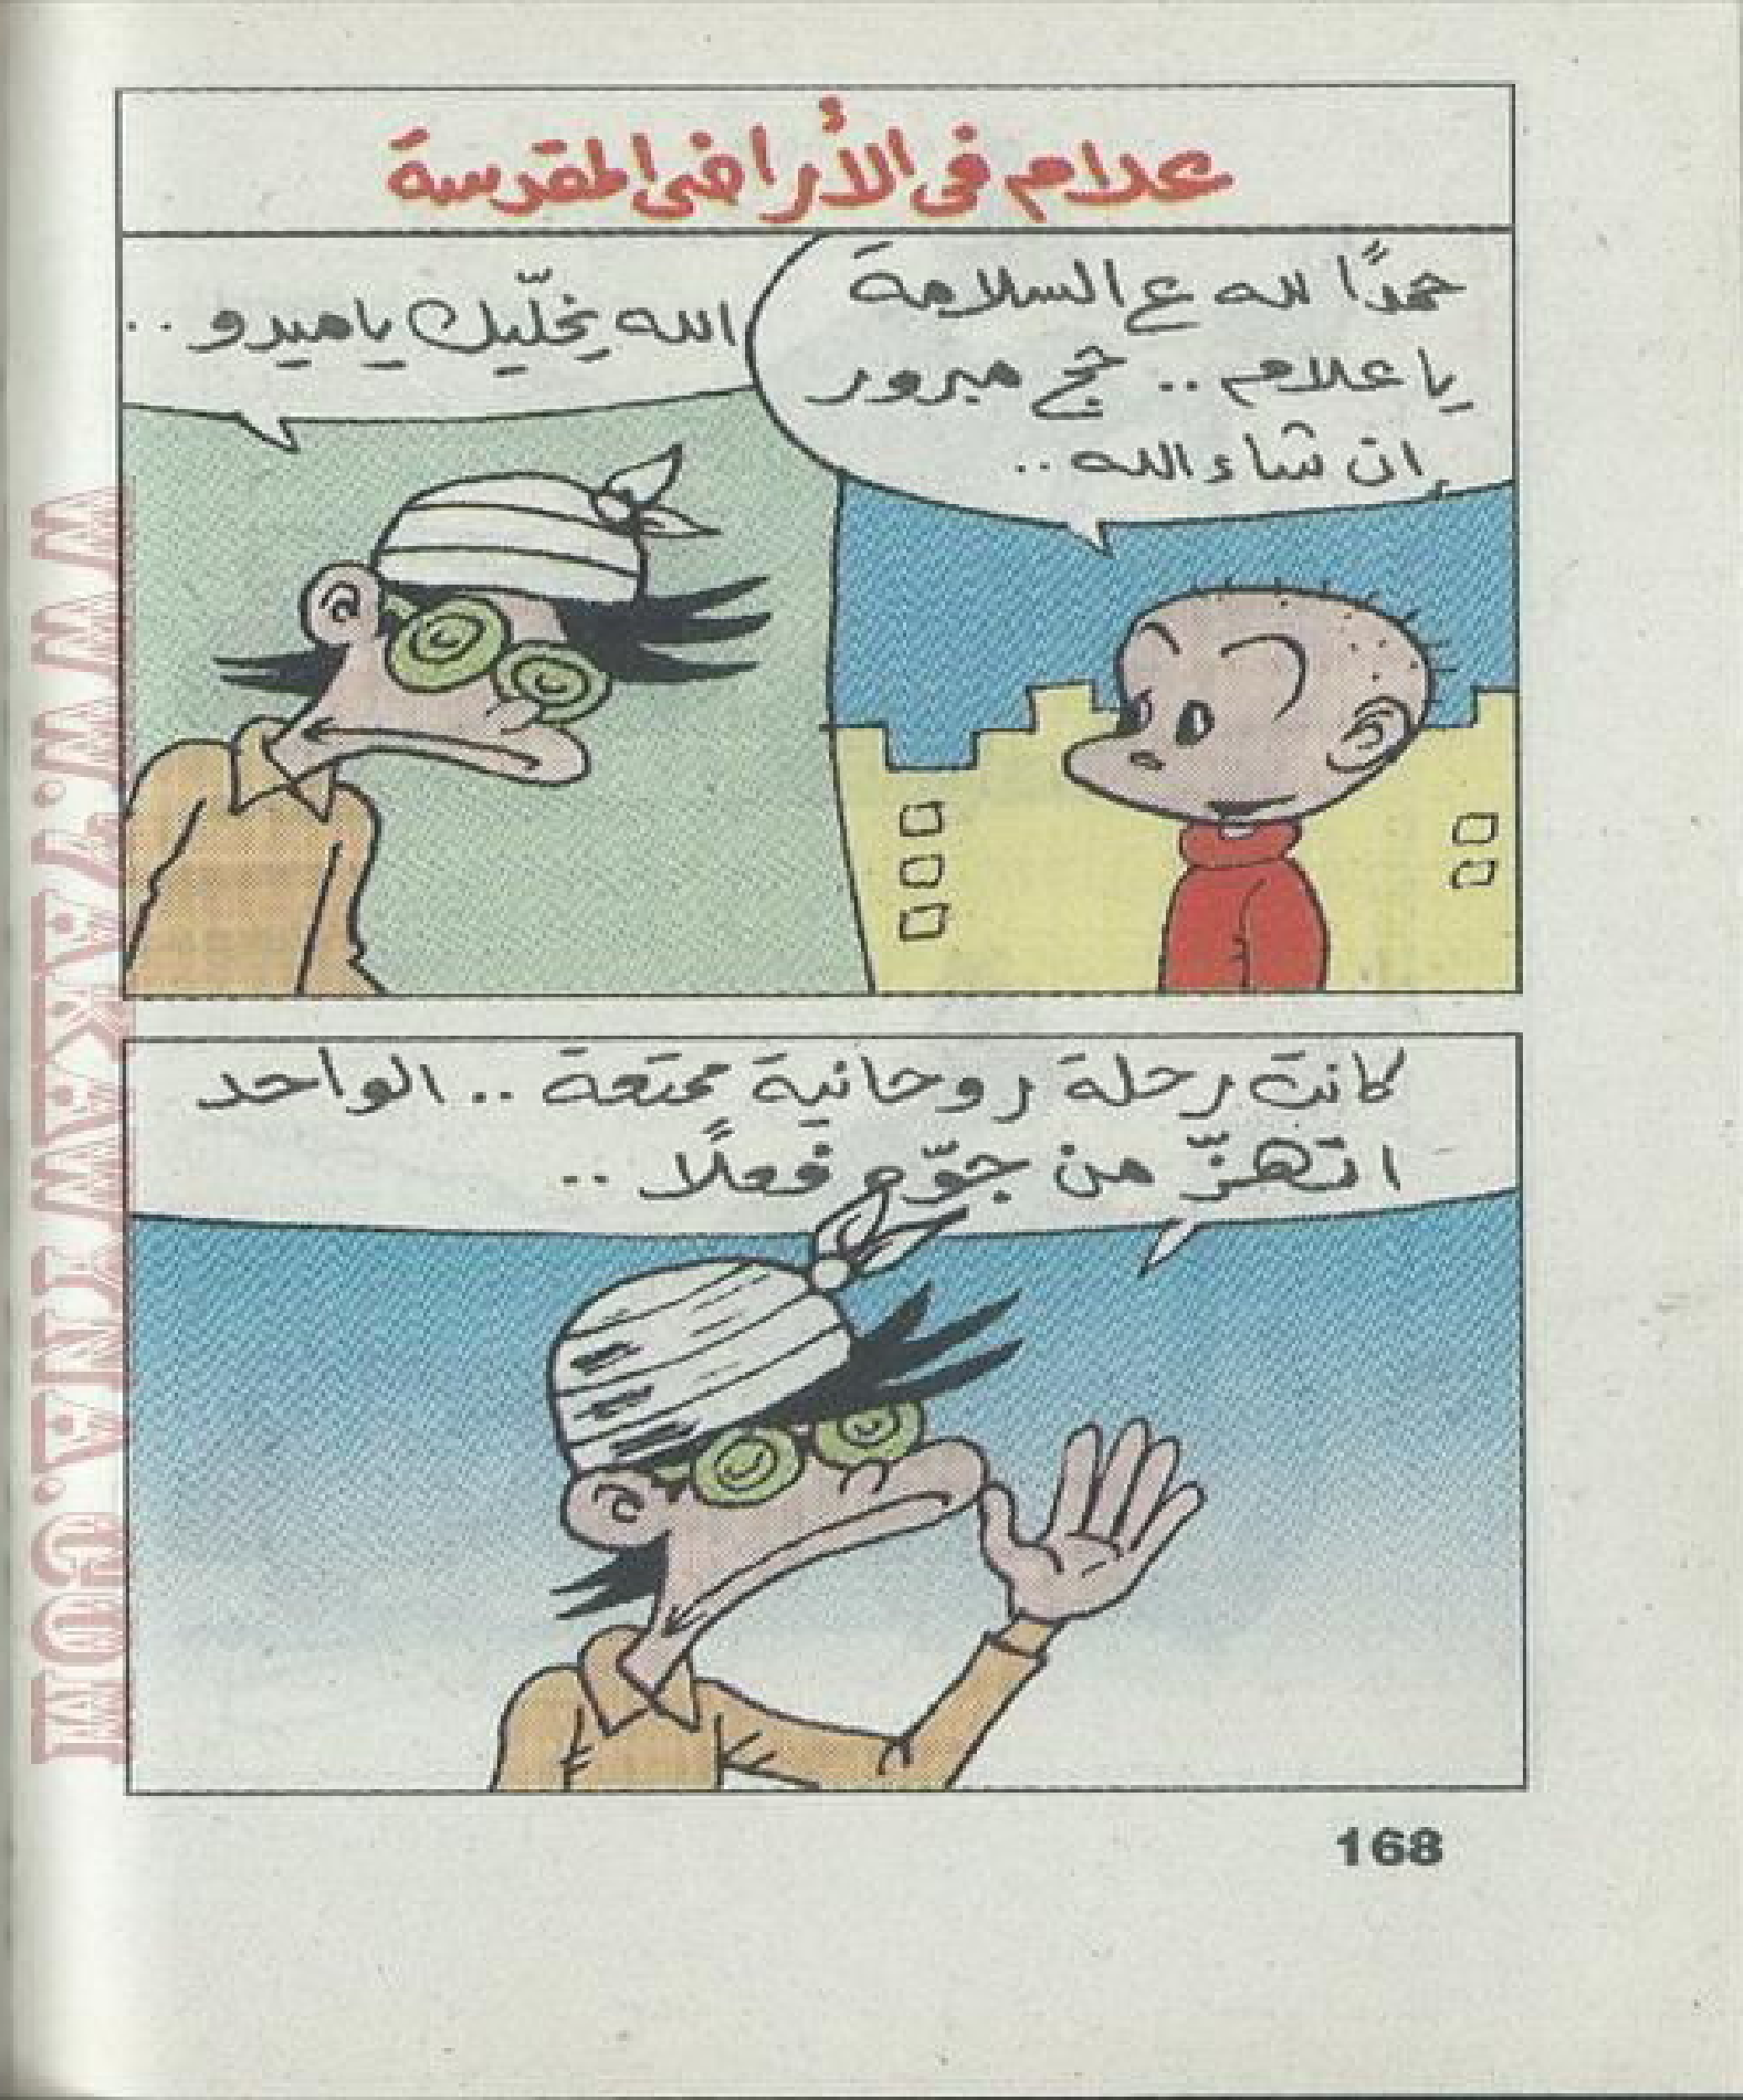 علام فى الأراضى المقدسة
حمدًا لله ع السلامة
يا علام .. حج مبرور
إن شاء الله ..
الله يخلّيك يا ميدو ..
كانت رحلة روحانية ممتعة .. الواحد
اتهزّ من جوّه فعلًا ..
168
WWW.ZAKAWYNA.COM